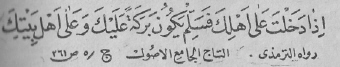 اِذَا دَخَلْتَ عَلٰی اَهْلِكَ فَسَلِّمْ يَكُوْنُ بَرَكَةً عَلَيْكَ وَعَلٰی اَهْلِ بَيْتِكَ
رواه الترمذی، التاج الجامع الاصول ج ٥ ص ٢٦١